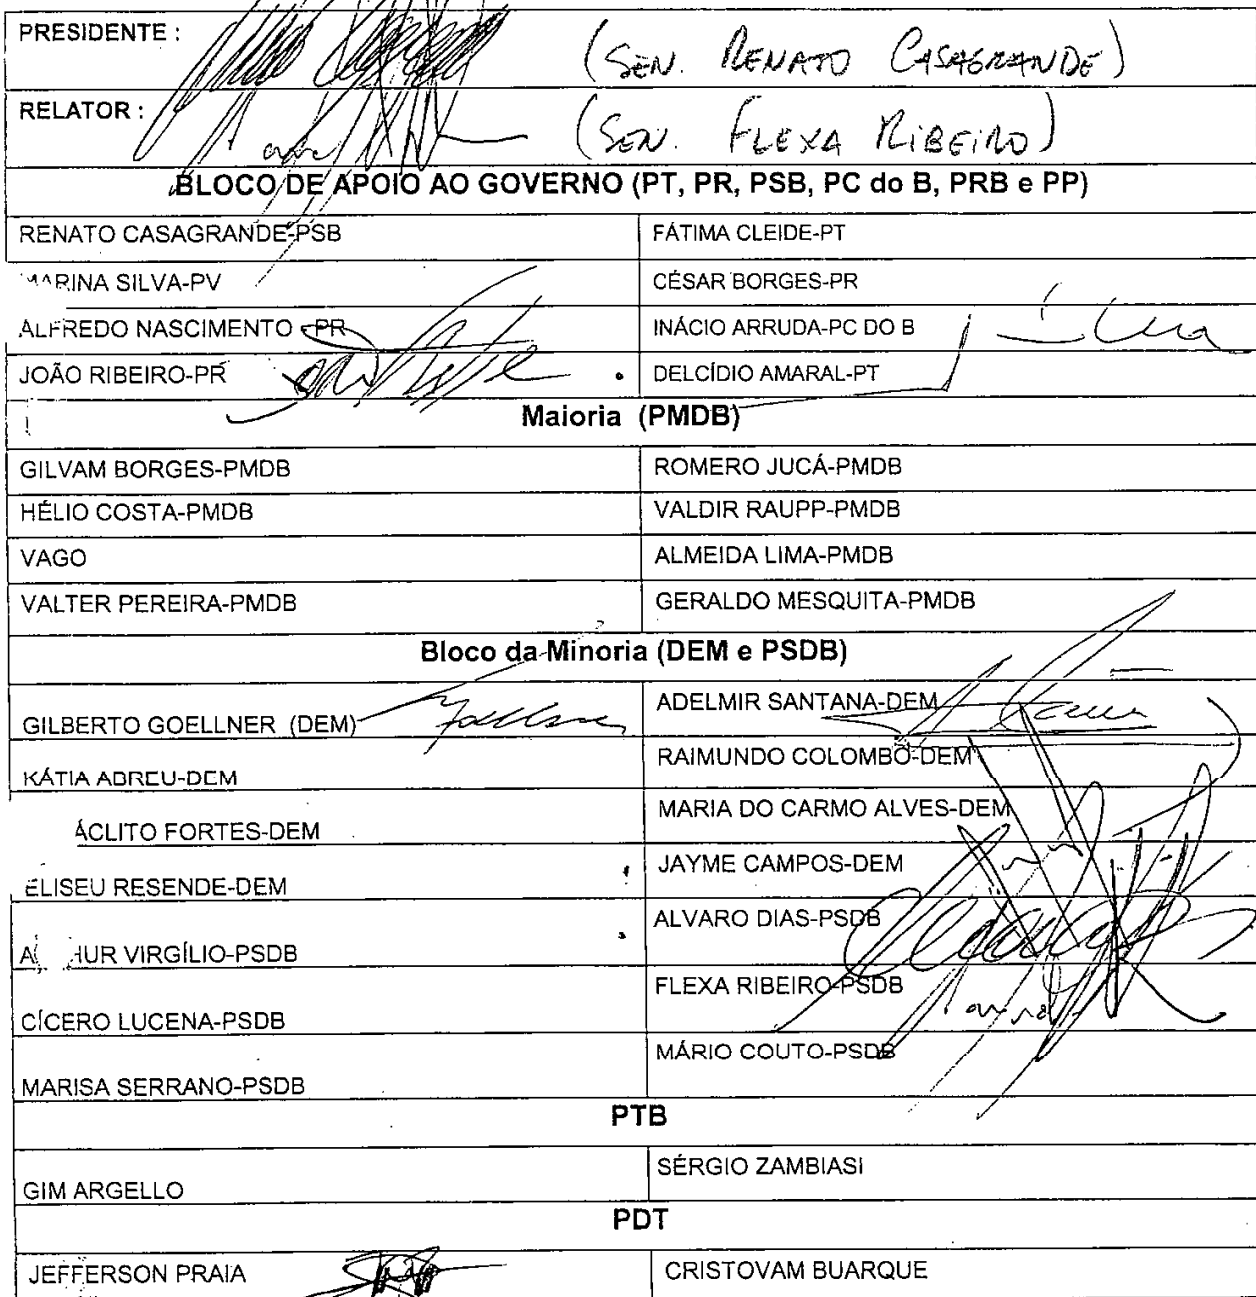 PRESIDENTE : (SEN. RENATO CASAGRANDE)
RELATOR : (SEN. FLEXA RIBEIRO)
BLOCO DE APOIO AO GOVERNO (PT, PR, PSB, PC do B, PRB e PP)
RENATO CASAGRANDE-PSB FÁTIMA CLEIDE-PT
MARINA SILVA-PV CÉSAR BORGES-PR
ALFREDO NASCIMENTO -PR INÁCIO ARRUDA-PC DO B
JOÃO RIBEIRO-PR DELCÍDIO AMARAL-PT
Maioria (PMDB)
GILVAM BORGES-PMDB ROMERO JUCÁ-PMDB
HÉLIO COSTA-PMDB VALDIR RAUPP-PMDB
VAGO ALMEIDA LIMA-PMDB
VALTER PEREIRA-PMDB GERALDO MESQUITA-PMDB
Bloco da Minoria (DEM e PSDB)
GILBERTO GOELLNER (DEM) ADELMIR SANTANA-DEM
KÁTIA ABREU-DEM RAIMUNDO COLOMBO-DEM
ÁCLITO FORTES-DEM MARIA DO CARMO ALVES-DEM
ELISEU RESENDE-DEM JAYME CAMPOS-DEM
A HUR VIRGÍLIO-PSDB ALVARO DIAS-PSDB
CÍCERO LUCENA-PSDB FLEXA RIBEIRO-PSDB
MARISA SERRANO-PSDB MÁRIO COUTO-PSDB
PTB
GIM ARGELLO SÉRGIO ZAMBIASI
PDT
JEFFERSON PRAIA CRISTOVAM BUARQUE